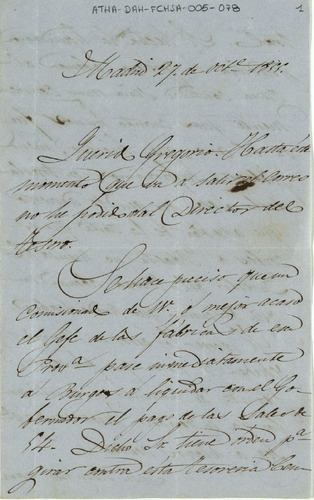 ATHA-DAH-FCHSA-005-078
1
Madrid 27 de Oct.e
Querido Gregorio. Hasta este
momento que va a salir el Correo
no he podido al Director del
Tesoro.
Se hace preciso que un
Comisionado de V. o mejor acaso
el Gefe de la fabrica de esa
Prov.a pase inmediatamente
a Burgos a liquidar con el Go-
bernador el pago de las Sales de
54. Dicho Sr. tiene orden p.a
girar contra esta Tesoreria Cen-